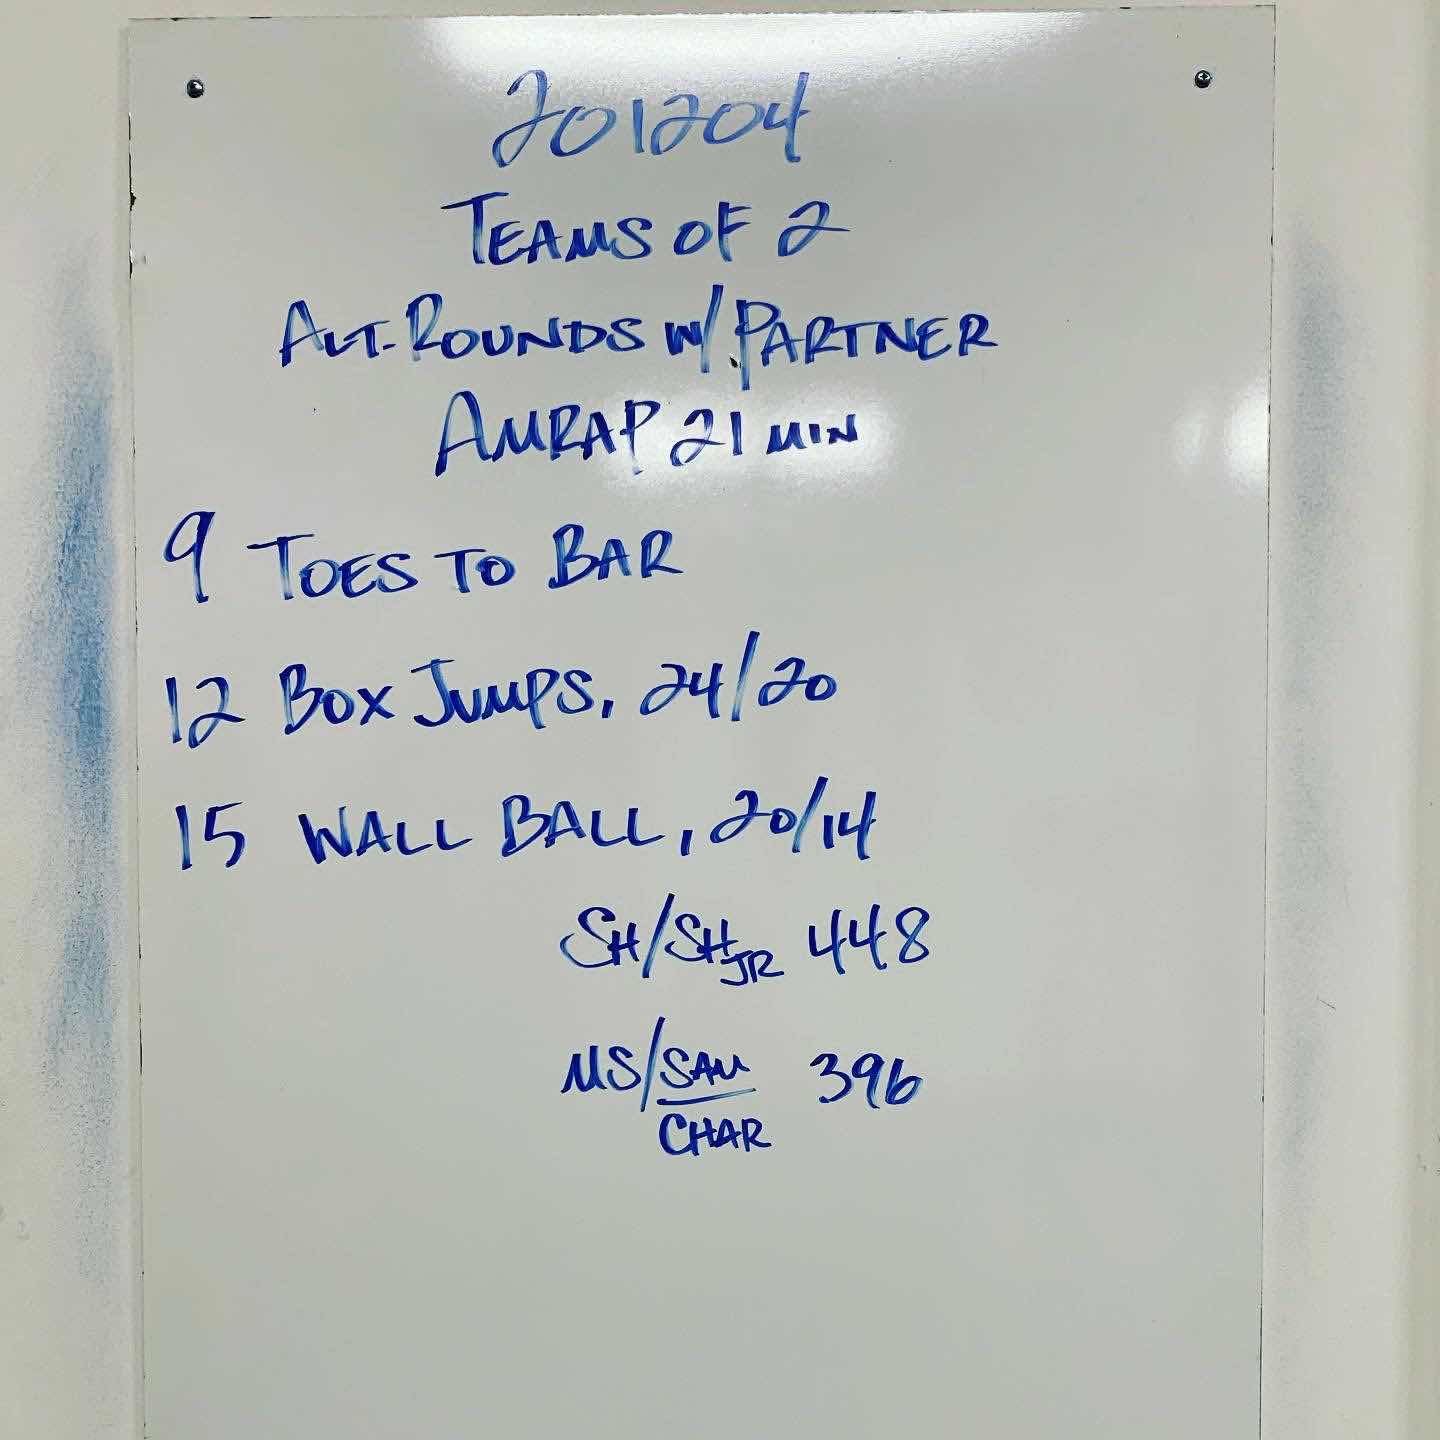 201204
TEAMS OF 2
ALT. ROUNDS W/ PARTNER
AMRAP 21 MIN
9 TOES TO BAR
12 BOX JUMPS, 24/20
15 WALL BALL, 20/14
SH/SH JR 448
MS/SAM 396
CHAR